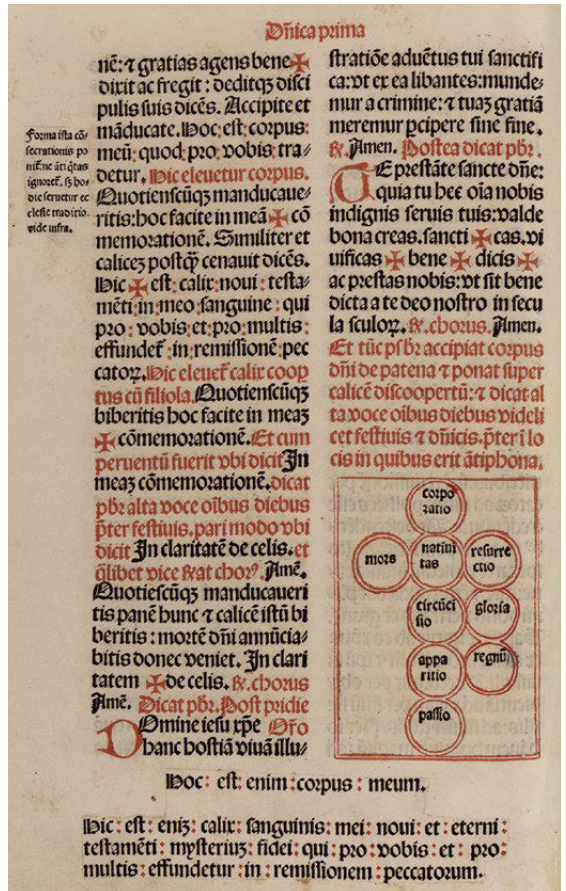 Dñica prima
nē: ⁊ gratias agens bene✠
dixit ac fregit: deditqꝫ disci
pulis suis dicēs. Accipite et
māducate. Hoc: est: corpus:
meū: quod: pro: vobis: tra-
detur. Hic eleuetur corpus.
Quotienscūqꝫ manducaue-
ritis: hoc facite in meā ✠ cō
memorationē. Similiter et
calicēꝫ postqꝫ cenauit dicēs.
Hic ✠ est: calix: noui: testa-
mēti: in: meo: sanguine: qui
pro: vobis: et: pro: multis:
effundet: in: remissionē: pec
catoꝝ. Hic eleuet calix coop
tus cū filiola. Quotienscūqꝫ
biberitis hoc facite in meaꝫ
✠ cōmemorationē. Et cum
peruentū fuerit vbi dicit In
meaꝫ cōmemorationē. dicat
pbr̄ alta voce oībus diebus
pter festiuis. pari modo vbi
dicit In claritatē de celis. et
qlibet vice Rñdeat chorꝰ. Amē.
Quotiescūqꝫ manducaueri
tis panē hunc ⁊ calicē istū bi
beritis: mortē dñi annūcia-
bitis donec veniet. In clari
tatem ✠ de celis. ℟. chorus
Amē. Dicat pbr̄. Post pridie
Domine iesu xp̄e Oro
hanc hostiā viuā illu-
Forma ista cō-
secrationis po
nit ne
ignoret. sꝫ ho-
die seruetur ec
clesie traditio.
vide infra.
stratiōe aduētus tui sanctifi
ca: vt ex ea libantes: munde-
mur a crimine: ⁊ tuaꝫ gratiā
meremur pcipere sine fine.
℟. Amen. Postea dicat pbr̄.
TE prestāte sancte dñe:
quia tu hec oīa nobis
indignis seruis tuis: valde
bona creas. sancti ✠ cas. vi
uificas ✠ bene ✠ dicis ✠
ac prestas nobis: vt sit bene
dicta a te deo nostro in secu
la sculoꝝ. ℟. chorus. Amen.
Et tūc psbr̄ accipiat corpus
dñi de patena ⁊ ponat super
calicē discoopertū: ⁊ dicat al
ta voce oībus diebus videli
cet festiuis ⁊ dñicis. pter ī lo
cis in quibus erit ātiphona.
corpo
ratio
mors
natiui
tas
resurre
ctio
circūci
sio
gloria
appa
ritio
regnū
passio
Hoc: est: enim: corpus: meum.
Hic: est: eniꝫ: calix: sanguinis: mei: noui: et: eterni:
testamēti: mysteriuꝫ: fidei: qui: pro: vobis: et: pro:
multis: effundetur: in: remissionem: peccatorum.